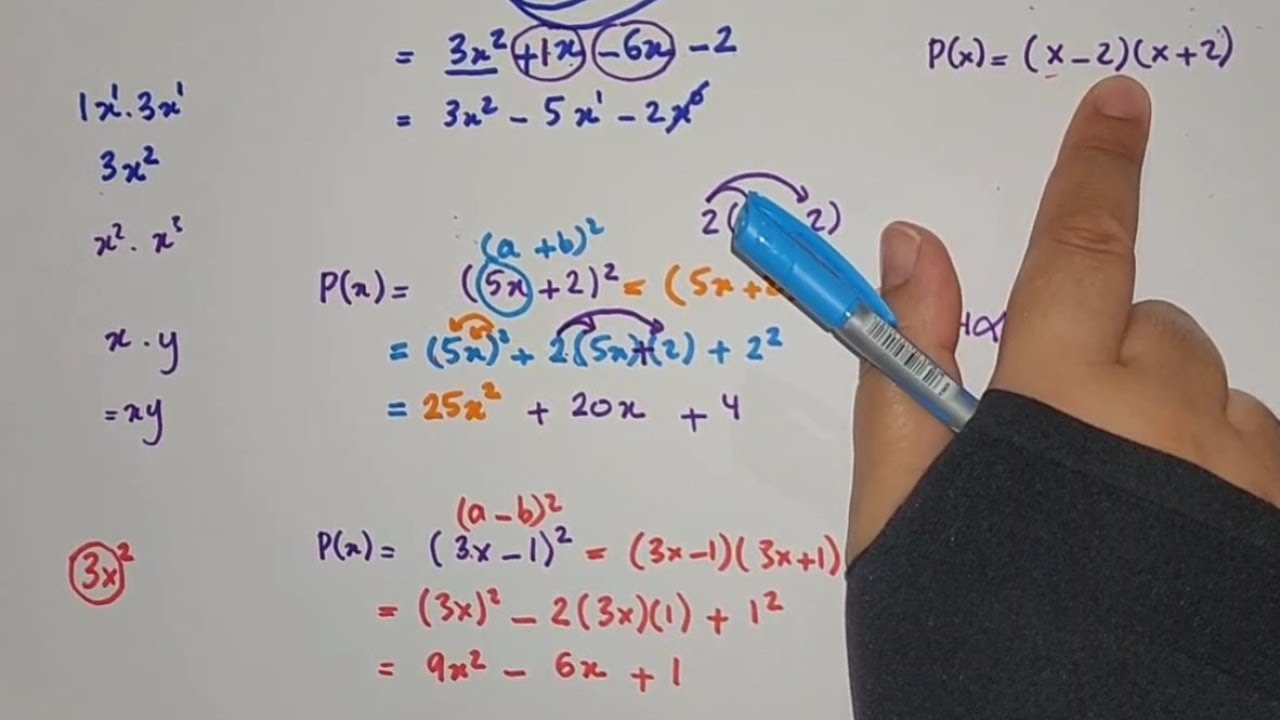 = 3x² +1x -6x -2
= 3x² - 5x¹ - 2x⁰
1x¹.3x¹
3x²
x² . x³
x . y
= xy
2( 2)
(a + b)²
P(x) = (5x + 2)² = (5x +
= (5x)² + 2(5x)(2) + 2²
= 25x² + 20x + 4
(a - b)²
P(x) = (3x - 1)² = (3x-1)(3x+1)
= (3x)² - 2(3x)(1) + 1²
= 9x² - 6x + 1
3x²
P(x) = (x - 2)(x + 2)